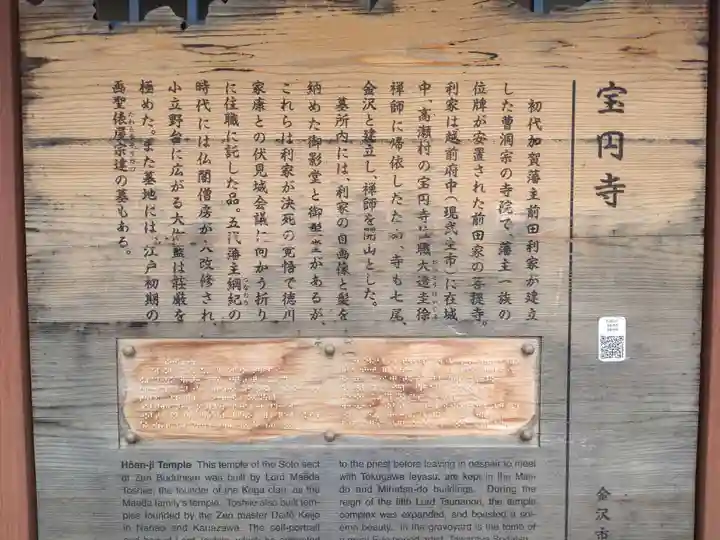 宝円寺
初代加賀藩主前田利家が建立
した曹洞宗の寺院で、藩主一族の
位牌が安置された前田家の菩提寺。
利家は越前府中(現武生市)に在城
中、高瀬村の宝円寺住職大透圭徐
禅師に帰依したため、寺も七尾、
金沢と建立し、禅師を開山とした。
墓所内には、利家の自画像と髪を
納めた御影堂と御髪堂があるが、
これらは利家が決死の覚悟で徳川
家康との伏見城会議に向かう折り
に住職に託した品。五代藩主綱紀の
つなのり
時代には仏閣僧房が 改修され、
小立野台に広がる大伽藍は荘厳を
極めた。また墓地には、江戸初期の
画聖俵屋宗達の墓もある。
たわらやそうたつ
金沢市
Hōen-ji Temple This temple of the Soto sect
of Zen Buddhism was built by Lord Maeda
Toshiie, the founder of the Kaga clan, as the
Maeda family's temple. Toshiie also built tem-
ples founded by the Zen master Daitō Keijo
in Nanao and Kanazawa. The self-portrait
to the priest before leaving in despair to meet
with Tokugawa Ieyasu, are kept in the Mie-
do and Mihatsu-do buildings. During the
reign of the fifth Lord Tsunanori, the temple
complex was expanded, and boasted a sol-
emn beauty. In the graveyard is the tomb of